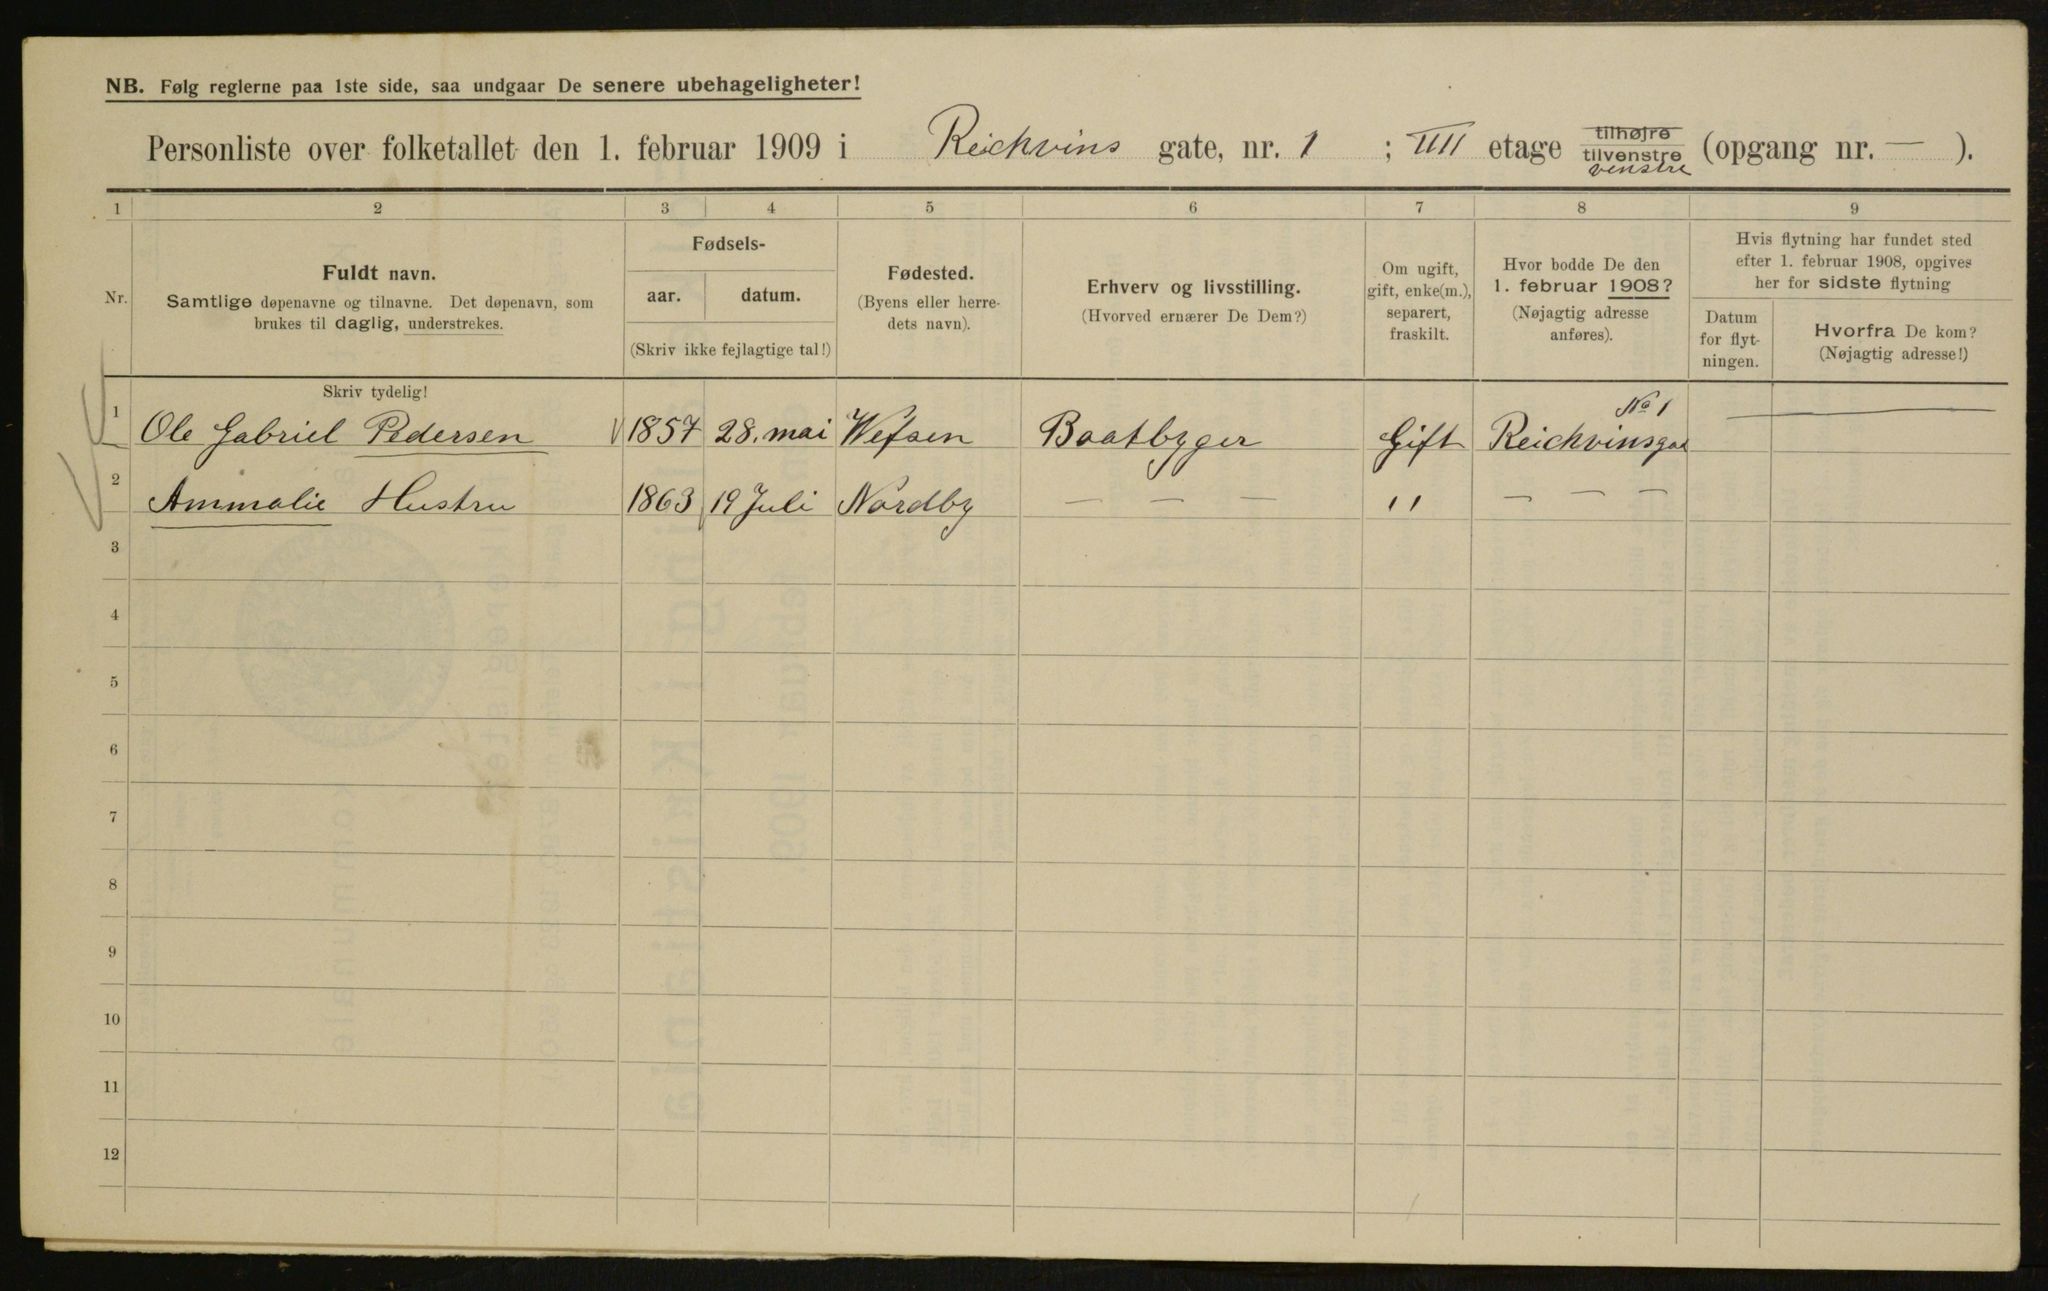 NB. Følg reglerne paa 1ste side, saa undgaar De senere ubehageligheter!
Personliste over folketallet den 1. februar 1909 i Reichvins gate, nr. 1 ; IIII etage tilhøjre tilvenstre venstre (opgang nr. — ).
1 2 3 4 5 6 7 8 9
Nr.
Fuldt navn.
Samtlige døpenavne og tilnavne. Det døpenavn, som
brukes til daglig, understrekes.
Fødsels-
aar. datum.
(Skriv ikke fejlagtige tal!)
Fødested.
(Byens eller herre-
dets navn).
Erhverv og livsstilling.
(Hvorved ernærer De Dem?)
Om ugift,
gift, enke(m.),
separert,
fraskilt.
Hvor bodde De den
1. februar 1908?
(Nøjagtig adresse
anføres).
Hvis flytning har fundet sted
efter 1. februar 1908, opgives
her for sidste flytning
Datum
for flyt-
ningen.
Hvorfra De kom?
(Nøjagtig adresse!)
Skriv tydelig!
No 1
1 Ole Gabriel Pedersen 1857 28. mai Wefsen Baatbyger Gift Reichvinsgad —
2 Ammalie Hustru 1863 19 Juli Nordby — — — " — — —
3
4
5
6
7
8
9
10
11
12